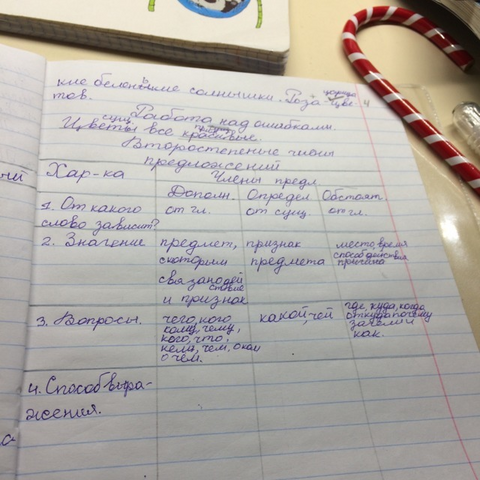 кие беленькие солнышки. Роза- Цве-
тов.
Работа над ошибками.
сущ
Цветы все красивые.
Второстепенные члены
предложений
Хар-ка
Члены предл.
Дополн. Определ Обстоят.
1. От какого слово зависит?
от гл. от сущ от гл.
2. Значение
предмет, с которым связано действие и признак
признак предмета
место, время способ действия причина
3. Вопросы.
чего, кого, кому, чему, кого, что, кем, чем, о ком о чём.
какой, чей
где, куда, когда откуда почему зачем и как.
4. Способ выра-
жения.